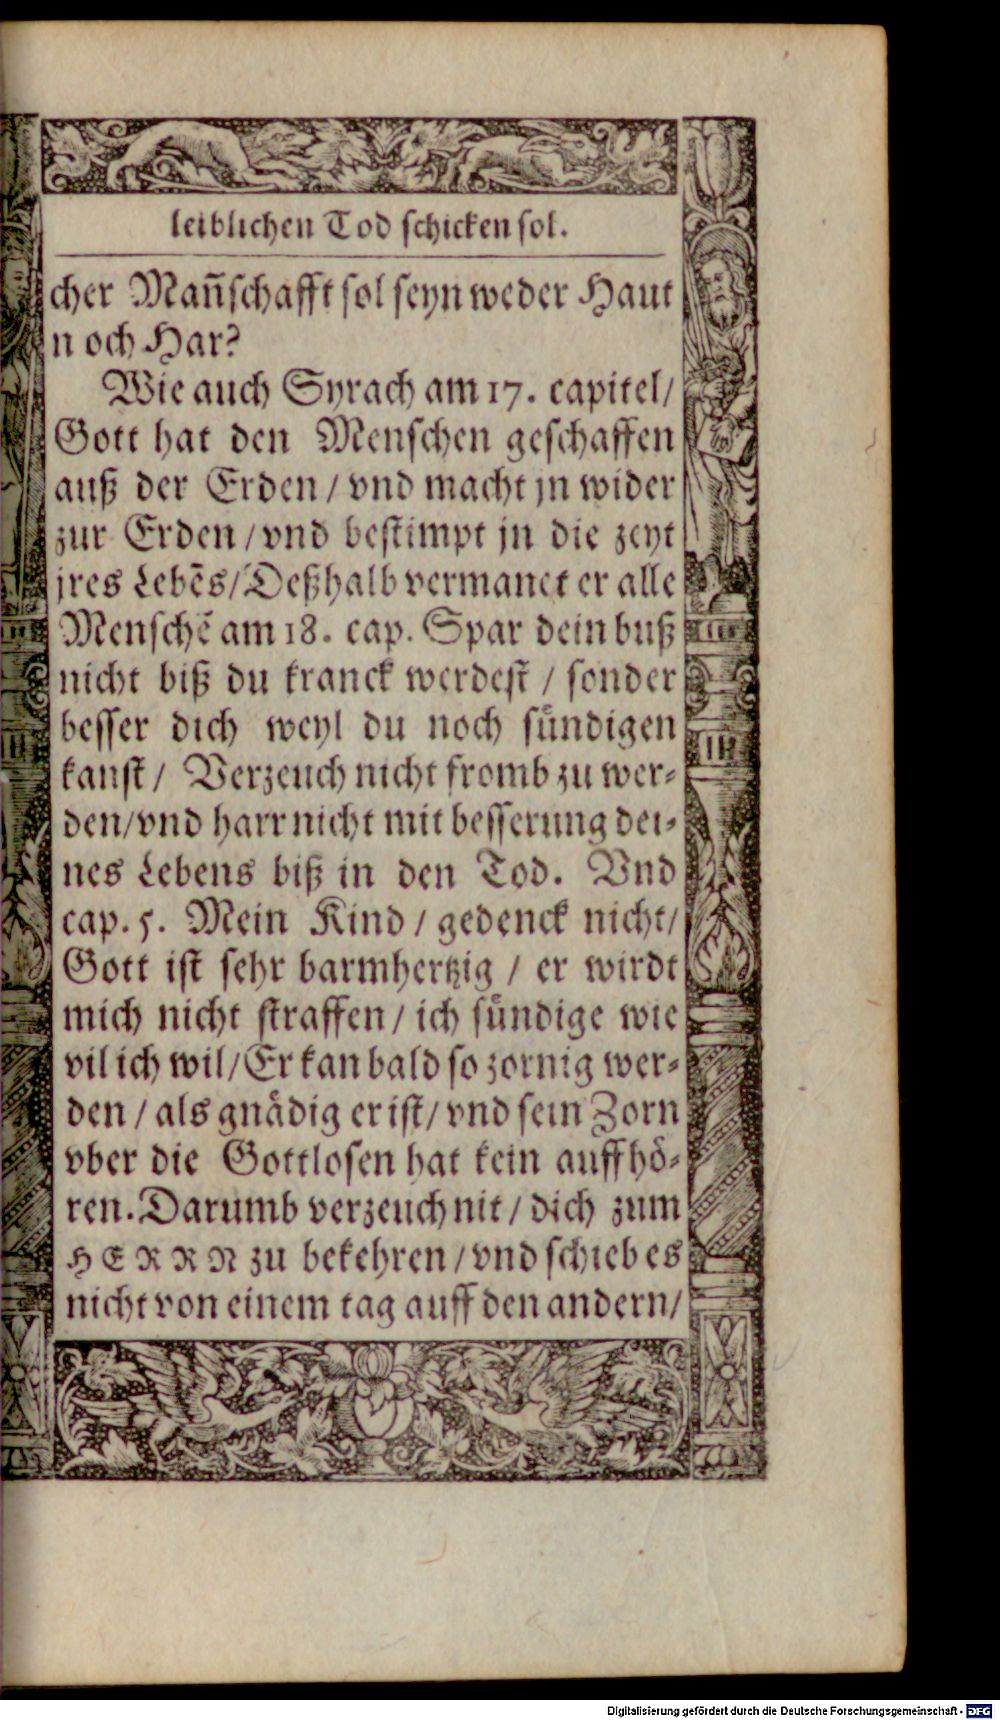 leiblichen Tod schicken sol.
cher Mañschafft sol seyn weder Haut
noch Har?
Wie auch Syrach am 17. capitel/
Gott hat den Menschen geschaffen
auß der Erden / vnd macht jn wider
zur Erden / vnd bestimpt jn die zeyt
jres Lebẽs / Deßhalb vermanet er alle
Menschẽ am 18. cap. Spar dein buß
nicht biß du kranck werdest / sonder
besser dich weyl du noch suͤndigen
kanst / Verzeuch nicht fromb zu wer⸗
den / vnd harr nicht mit besserung dei⸗
nes Lebens biß in den Tod. Vnd
cap. 5. Mein Kind / gedenck nicht /
Gott ist sehr barmhertzig / er wirdt
mich nicht straffen / ich suͤndige wie
vil ich wil / Er kan bald so zornig wer⸗
den / als gnaͤdig er ist / vnd sein Zorn
vber die Gottlosen hat kein auffhoͤ⸗
ren. Darumb verzeuch nit / dich zum
HERRN zu bekehren / vnd schieb es
nicht von einem tag auff den andern /
Digitalisierung gefördert durch die Deutsche Forschungsgemeinschaft - DFG